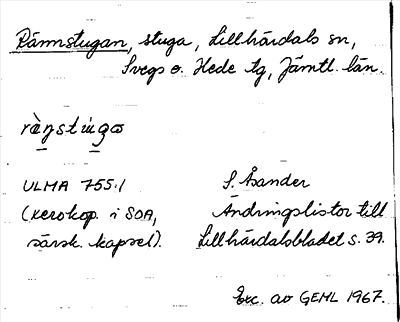 Rännstugan, stuga, Lillhärdals sn,
Svegs o. Hede tg, Jämtl. län.
ULMA 755:1 S. Åsander
(xerokop. i SOA, Ändringslistor till
särsk. kapsel). Lillhärdalsbladet s. 39.
Exc. av GEHL 1967.